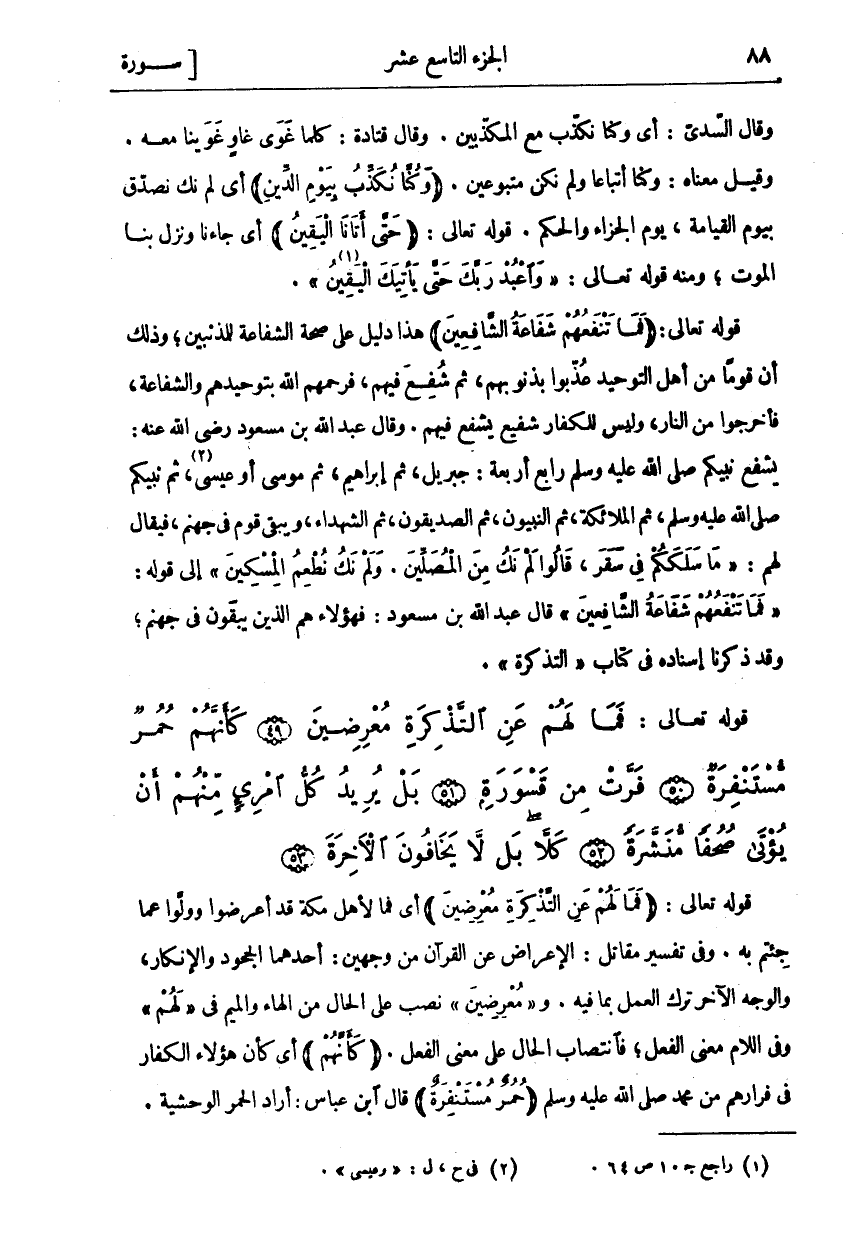 ٨٨ الجزء التاسع عشر [ ســورة
وقال السّدىّ : أى وكنا نكذّب مع المكذّبين . وقال قتادة : كلما غَوَى غاوٍ غَوَينا معــه .
وقيــل معناه : وكنا أتباعا ولم نكن متبوعين . ﴿وَكُنَّا نُكَذِّبُ بِيَوْمِ الدِّينِ﴾ أى لم نك نصدّق
بيوم القيامة ، يوم الجزاء والحكم . قوله تعالى : ﴿ حَتَّى أَتَانَا الْيَقِينُ ﴾ أى جاءنا ونزل بنــا
الموت ؛ ومنه قوله تعــالى : « وَٱعْبُدْ رَبَّكَ حَتَّى يَأْتِيَكَ الْيَقِينُ (١) » .
قوله تعالى: ﴿فَمَــا تَنْفَعُهُمْ شَفَاعَةُ الشَّافِعِينَ﴾ هذا دليل على صحة الشفاعة للمذنبين ؛ وذلك
أن قومًا من أهل التوحيد عُذّبوا بذنوبهم ، ثم شُفِــعَ فيهم ، فرحمهم الله بتوحيدهم والشفاعة ،
فأخرجوا من النار، وليس للكفار شفيع يشفع فيهم . وقال عبد الله بن مسعود رضى الله عنه :
يشفع نبيكم صلى الله عليه وسلم رابع أربعة : جبريل ، ثم إبراهيم ، ثم موسى أو عيسى (٢) ، ثم نبيكم
صلى الله عليه وسلم ، ثم الملائكة ، ثم النبيون ، ثم الصديقون ، ثم الشهداء ، ويبقى قوم فى جهنم ، فيقال
لهم : « مَا سَلَكَكُمْ فِى سَقَرَ ، قَالُوا لَمْ نَكُ مِنَ الْمُصَلِّينَ . وَلَمْ نَكُ نُطْعِمُ الْمِسْكِينَ » إلى قوله :
« فَمَا تَنْفَعُهُمْ شَفَاعَةُ الشَّافِعِينَ » قال عبد الله بن مسعود : فهؤلاء هم الذين يبقون فى جهنم ؛
وقد ذكرنا إسناده فى كتاب « التذكرة » .
قوله تعــالى : فَمَــا لَهُــمْ عَنِ ٱلتَّذْكِرَةِ مُعْرِضِــينَ ﴿٤٩﴾ كَأَنَّهُــمْ حُمُــرٌ
مُّسْتَنْفِرَةٌ ﴿٥٠﴾ فَرَّتْ مِن قَسْوَرَةٍۭ ﴿٥١﴾ بَلْ يُرِيدُ كُلُّ ٱمْرِئٍ مِّنْهُــمْ أَنْ
يُؤْتَىٰ صُحُفًا مُّنَشَّرَةً ﴿٥٢﴾ كَلَّا ۖ بَل لَّا يَخَافُونَ ٱلْآخِرَةَ ﴿٥٣﴾
قوله تعالى : ﴿ فَمَــا لَهُمْ عَنِ التَّذْكِرَةِ مُعْرِضِينَ ﴾ أى فما لأهل مكة قد أعرضوا وولَّوا عما
جئتم به . وفى تفسير مقاتل : الإعراض عن القرآن من وجهين : أحدهما الجحود والإنكار ،
والوجه الآخر ترك العمل بما فيه . و « مُعْرِضِينَ » نصب على الحال من الهاء والميم فى « لَهُمْ »
وفى اللام معنى الفعل ؛ فٱنتصاب الحال على معنى الفعل . ﴿ كَأَنَّهُمْ ﴾ أى كأن هؤلاء الكفار
فى فرارهم من محمد صلى الله عليه وسلم ﴿حُمُرٌ مُسْتَنْفِرَةٌ﴾ قال ٱبن عباس : أراد الحمر الوحشية .
(١) راجع جـ ١٠ ص ٦٤ . (٢) فى ح ، ل : « وعيسى » .